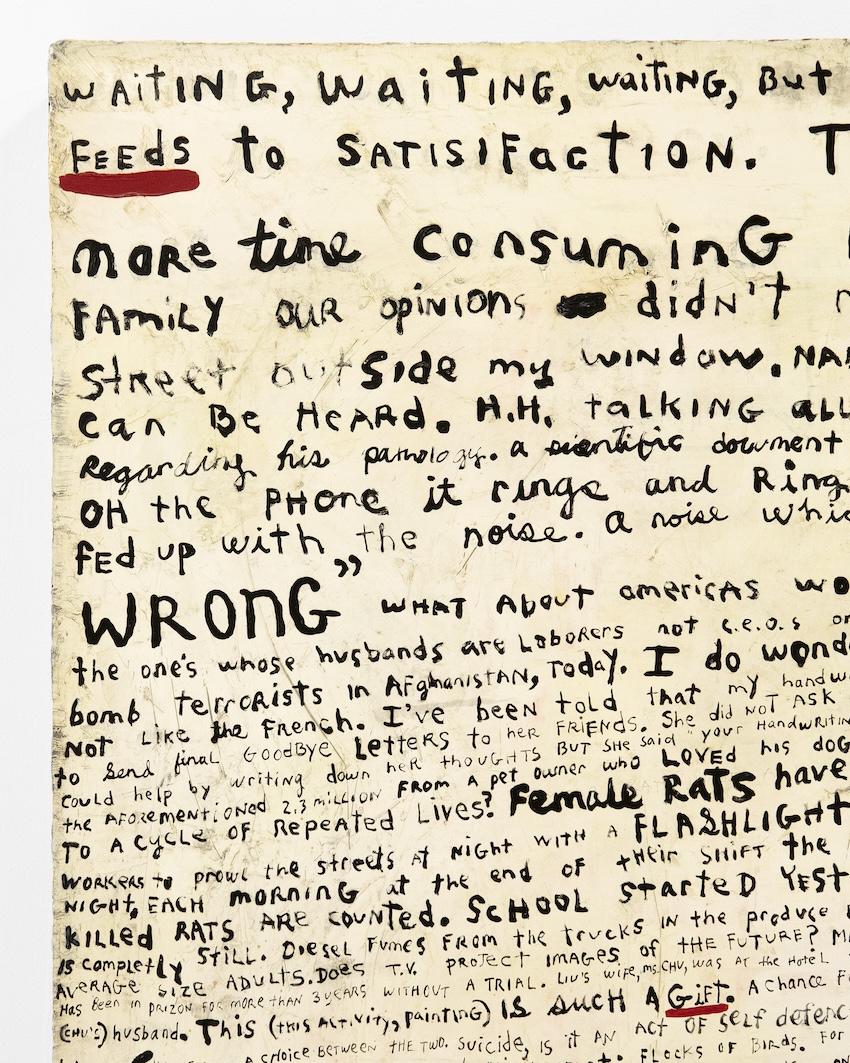 WAitING, WaitING, waitiNG, But
FEEdS to SATISIFactION. T
more time Consuming
FAmiLY OUR opiNions didn't
Street outSide my WINdow. NA
can Be HeARd. H.H. talKING all
Regarding his pathology. a scientific document
OH the PHone it rings and Ring
FEd up with the noise. a noise whic
WRONG" WHAT About americAS wo
the one's whose husbands are LaboRERs not c.e.o.s or
bomb terroRists in AfghanistAN, Today. I do wond
NOt Like the French. I've been told that my handw
to Send final GoodBye Letters to her FRIENDS. She did NOT ASK
could help by writing down her thoughts BUT SHe Said "your HandWRitin
the AFOREmentioned 2,3 million FROM A pet owner who LOVEd his dog
To A Cycle OF Repeated Lives? Female RatS have
WORKERS to prowl the streets At Night with A FLASHLIGHT
NIGHt, EACH morninG at the end OF tHeir SHIFT the
killed RATS ARE couNted. ScHOOL StarteD YEST
IS completly still. Diesel Fumes From the trucks IN the produce
AVERAGE size ADultS. Does T.V. project IMAGES of tHE FUTURE? M
Has Been in prizon FOR more than 3 yeaRS WITHOUT A TRIAL. Liu's wife, ms. CHU, was At the HoteL
(CHU's) husband. This (this Activity, painting) IS such A GiFT. A chance F
A CHOICE BETWEEN the TWO. Suicide, is it AN ACT OF Self defenc
FLOCKS OF BIRDS. FOR